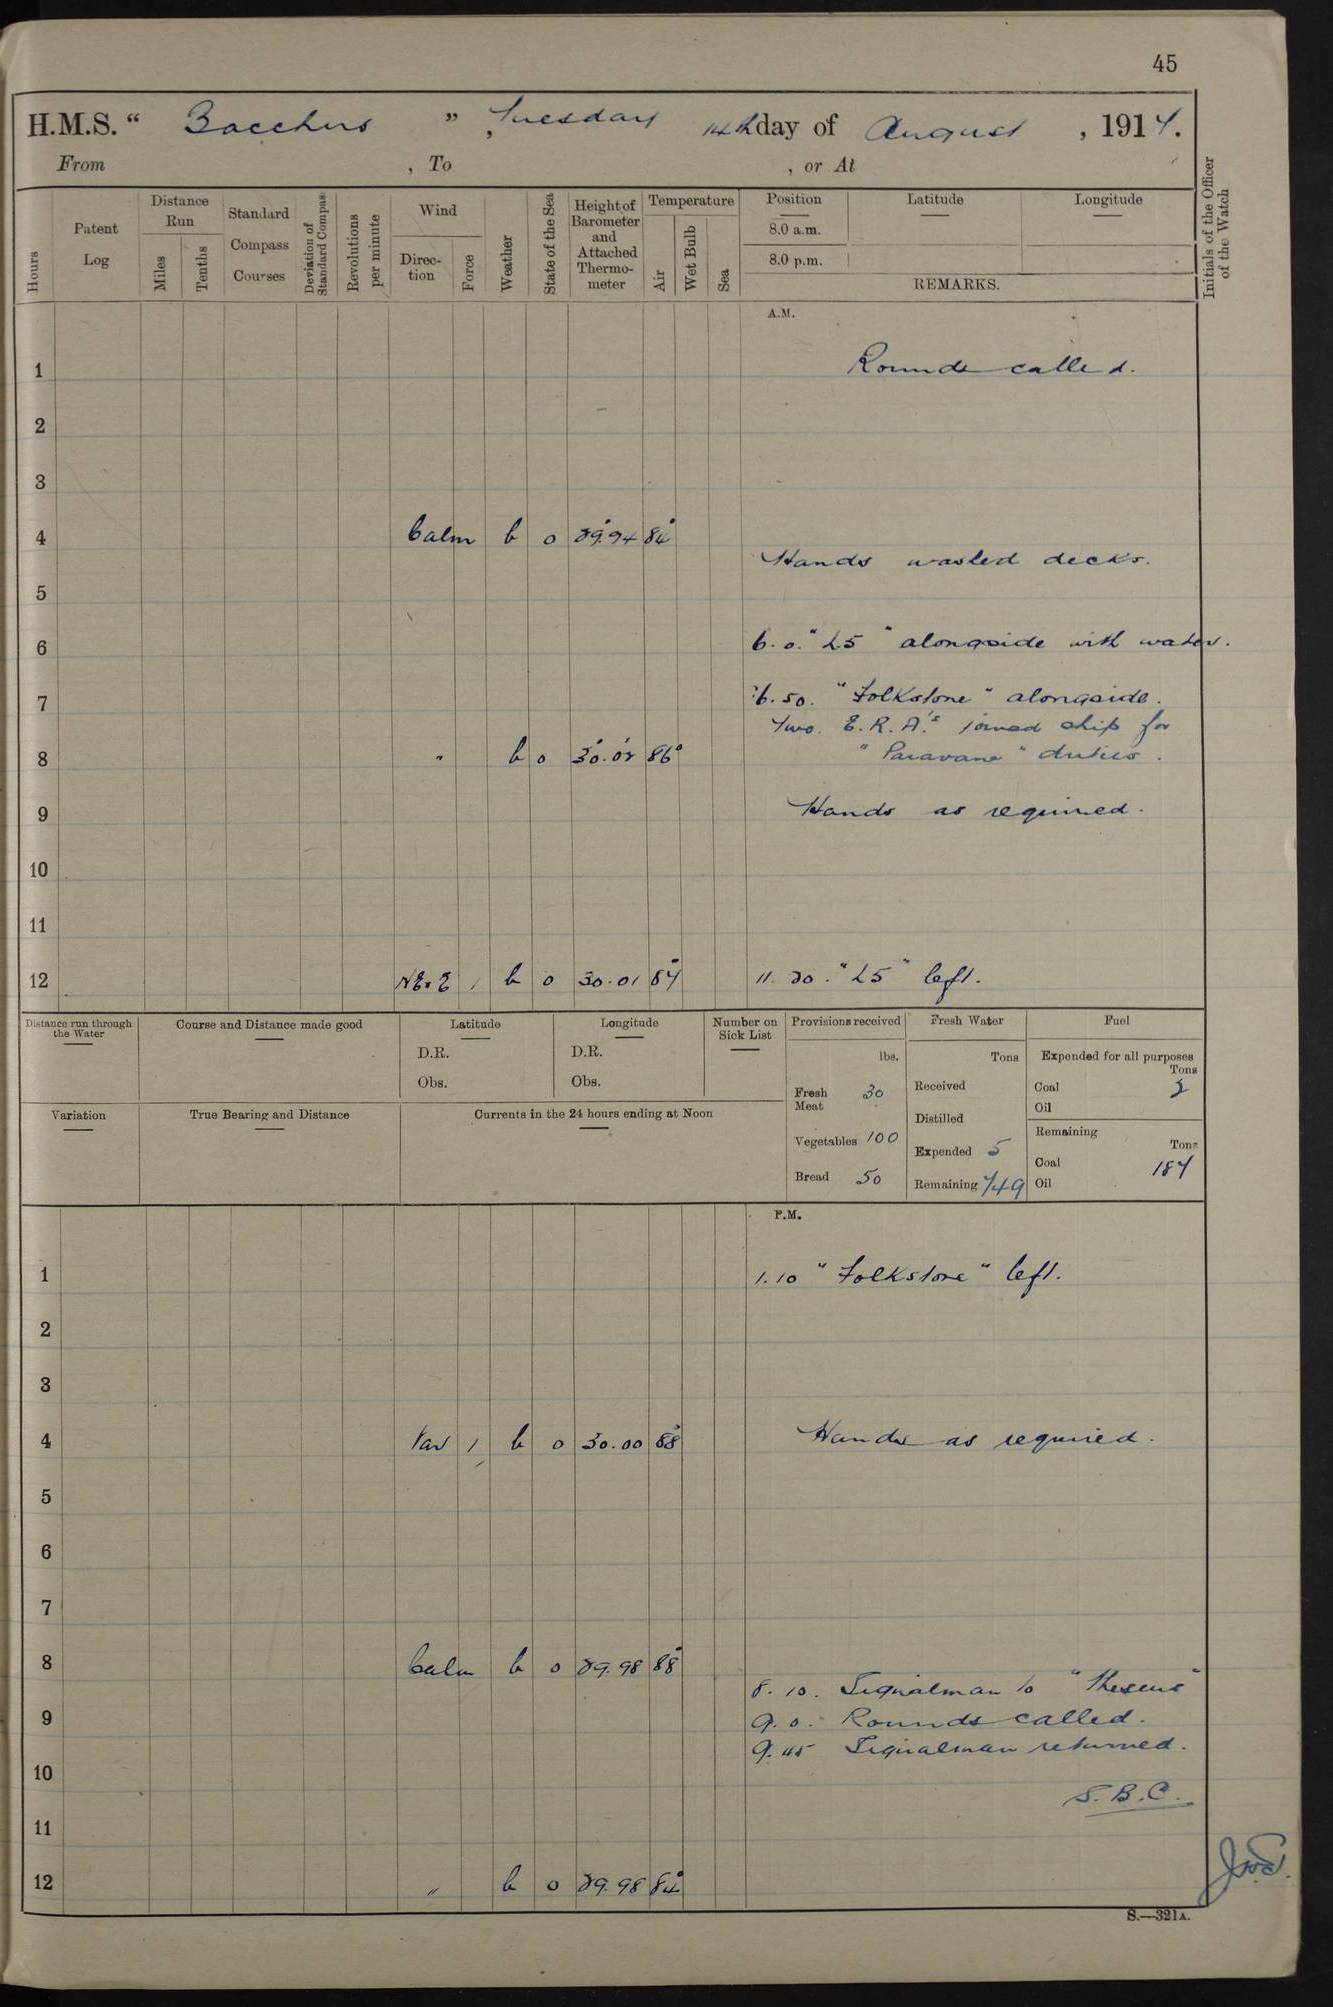 45
H.M.S. " Bacchus ", Tuesday 14th day of August, 1917.
From , To , or At
Hours
Patent Log
Distance Run
Miles
Tenths
Standard Compass Courses
Deviation of Standard Compass
Revolutions per minute
Wind
Direction
Force
Weather
State of the Sea
Height of Barometer and Attached Thermometer
Temperature
Air
Wet Bulb
Sea
Position
8.0 a.m.
8.0 p.m.
Latitude
Longitude
REMARKS.
Initials of the Officer of the Watch
A.M.
1 Rounds called.
2
3
4 Calm b 0 29.94 84°
Hands washed decks.
5
6 6.0. "L5" alongside with water.
7 6.50. "Folkstone" alongside.
Two E.R.A.'s joined ship for
8 " b 0 30.02 86°
"Paravane" duties.
9 Hands as required.
10
11
12 NExE 1 b 0 30.01 87° 11.30. "L5" left.
Distance run through the Water
Course and Distance made good
Latitude
D.R.
Obs.
Longitude
D.R.
Obs.
Number on Sick List
Provisions received
lbs.
Fresh Meat 30
Vegetables 100
Bread 50
Fresh Water
Tons
Received
Distilled
Expended 5
Remaining 749
Fuel
Expended for all purposes
Tons
Coal 2
Oil
Remaining
Tons
Coal 187
Oil
Variation
True Bearing and Distance
Currents in the 24 hours ending at Noon
P.M.
1 1.10 "Folkstone" left.
2
3
4 Var 1 b 0 30.00 88° Hands as required.
5
6
7
8 Calm b 0 29.98 88°
8.10. Signalman to "Theseus"
9 9.0. Rounds called.
9.45 Signalman returned.
10
S.B.C.
11
12 " b 0 29.98 84°
S.—321A.